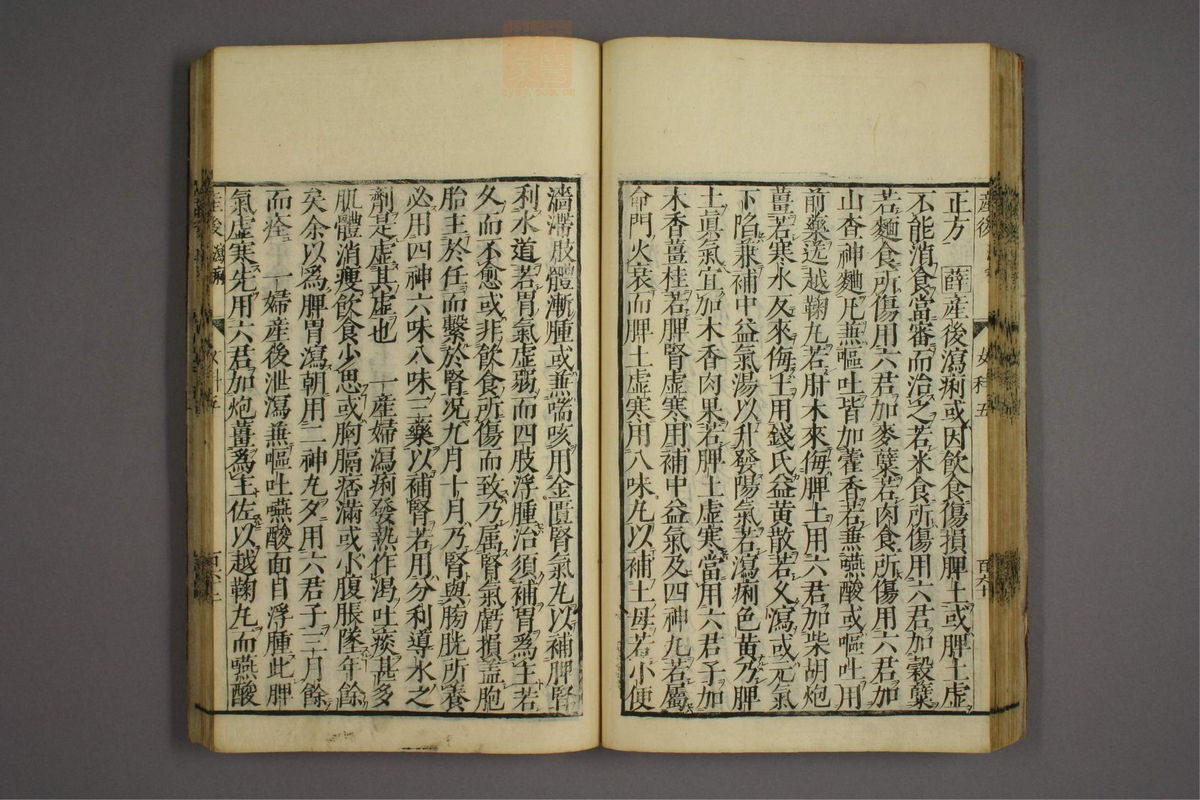 正方　薛産後瀉痢或因飲食傷損脾土或脾土虛
不能消食當審而治之若米食所傷用六君加穀蘗
若麵食所傷用六君加麥蘗若肉食所傷用六君加
山查神麯凡兼嘔吐皆加藿香若兼嚥酸或嘔吐用
前藥送越鞠丸若肝木來侮脾土用六君加柴胡炮
薑若寒水反來侮土用錢氏益黃散若久瀉或元氣
下陷兼補中益氣湯以升發陽氣若瀉痢色黃乃脾
土眞氣宜加木香肉果若脾土虛寒當用六君子加
木香薑桂若脾腎虛寒用補中益氣及四神丸若屬
命門火衰而脾土虛寒用八味丸以補土母若小便
濇滯肢體漸腫或兼喘咳用金匱腎氣丸以補脾腎
利水道若胃氣虛弱而四肢浮腫治須補胃爲主若
久而不愈或非飲食所傷而致乃属腎氣虧損蓋胞
胎主於任而繫於腎况九月十月乃腎與膀胱所養
必用四神六味八味三藥以補腎若用分利導水之
劑是虛其虛也　一產婦瀉痢發熱作渴吐痰甚多
肌體消瘦飲食少思或胸膈痞滿或小腹脹墜年餘
矣余以爲脾胃瀉朝用二神丸夕用六君子三月餘
而痊　一婦産後泄瀉兼嘔吐嚥酸面目浮腫此脾
氣虛寒先用六君加炮薑爲主佐以越鞠丸而嚥酸
産後
女科五
百六十
産後 瀉痢
女科五